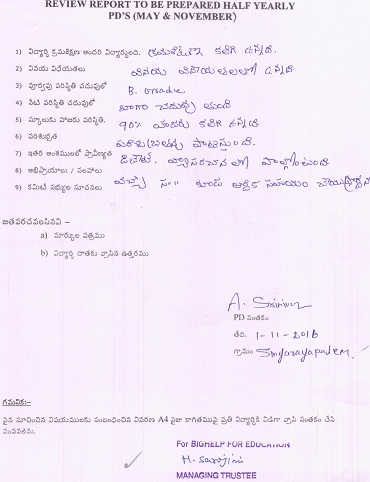 REVIEW REPORT TO BE PREPARED HALF YEARLY
PD'S (MAY & NOVEMBER)
1) విద్యార్థి క్రమశిక్షణ అందరి విద్యార్థులది. క్రమశిక్షణ కలిగి ఉన్నది
2) వినయ విధేయతలు వినయ విధేయతలతో ఉన్నది
3) పూర్వపు పరిస్థితి చదువులో B. Grade
4) నేటి పరిస్థితి చదువులో బాగా చదువు తుంది
5) స్కూలుకు హాజరు పరిస్థితి. 90% హాజరు కలిగి ఉన్నది
6) పరిశుభ్రత పరిశుభ్రతను పాటిస్తుంది.
7) ఇతర అంశములలో ప్రావీణ్యత డిబేట్, వ్యాసరచన లో పాల్గొంటుంది
8) అభిప్రాయాలు / సలహాలు
9) కమిటీ సభ్యుల సూచనలు వచ్చే సం॥ కూడు ఆర్థిక సహాయం
జతపరచవలసినవి –
a) మార్కుల పత్రము
b) విద్యార్థి దాతకు వ్రాసిన ఉత్తరము
A. Srinivas
PD సంతకం
తేది. 1-11-2016
గ్రామం Singarayapalem.
గమనిక:–
పైన సూచించిన విషయములకు సంబంధించిన వివరణ A4 సైజు కాగితముపై ప్రతి విద్యార్థికి విడిగా వ్రాసి సంతకం చేసి
పంపవలెను.
For BIGHELP FOR EDUCATION
M. Sarojini
MANAGING TRUSTEE